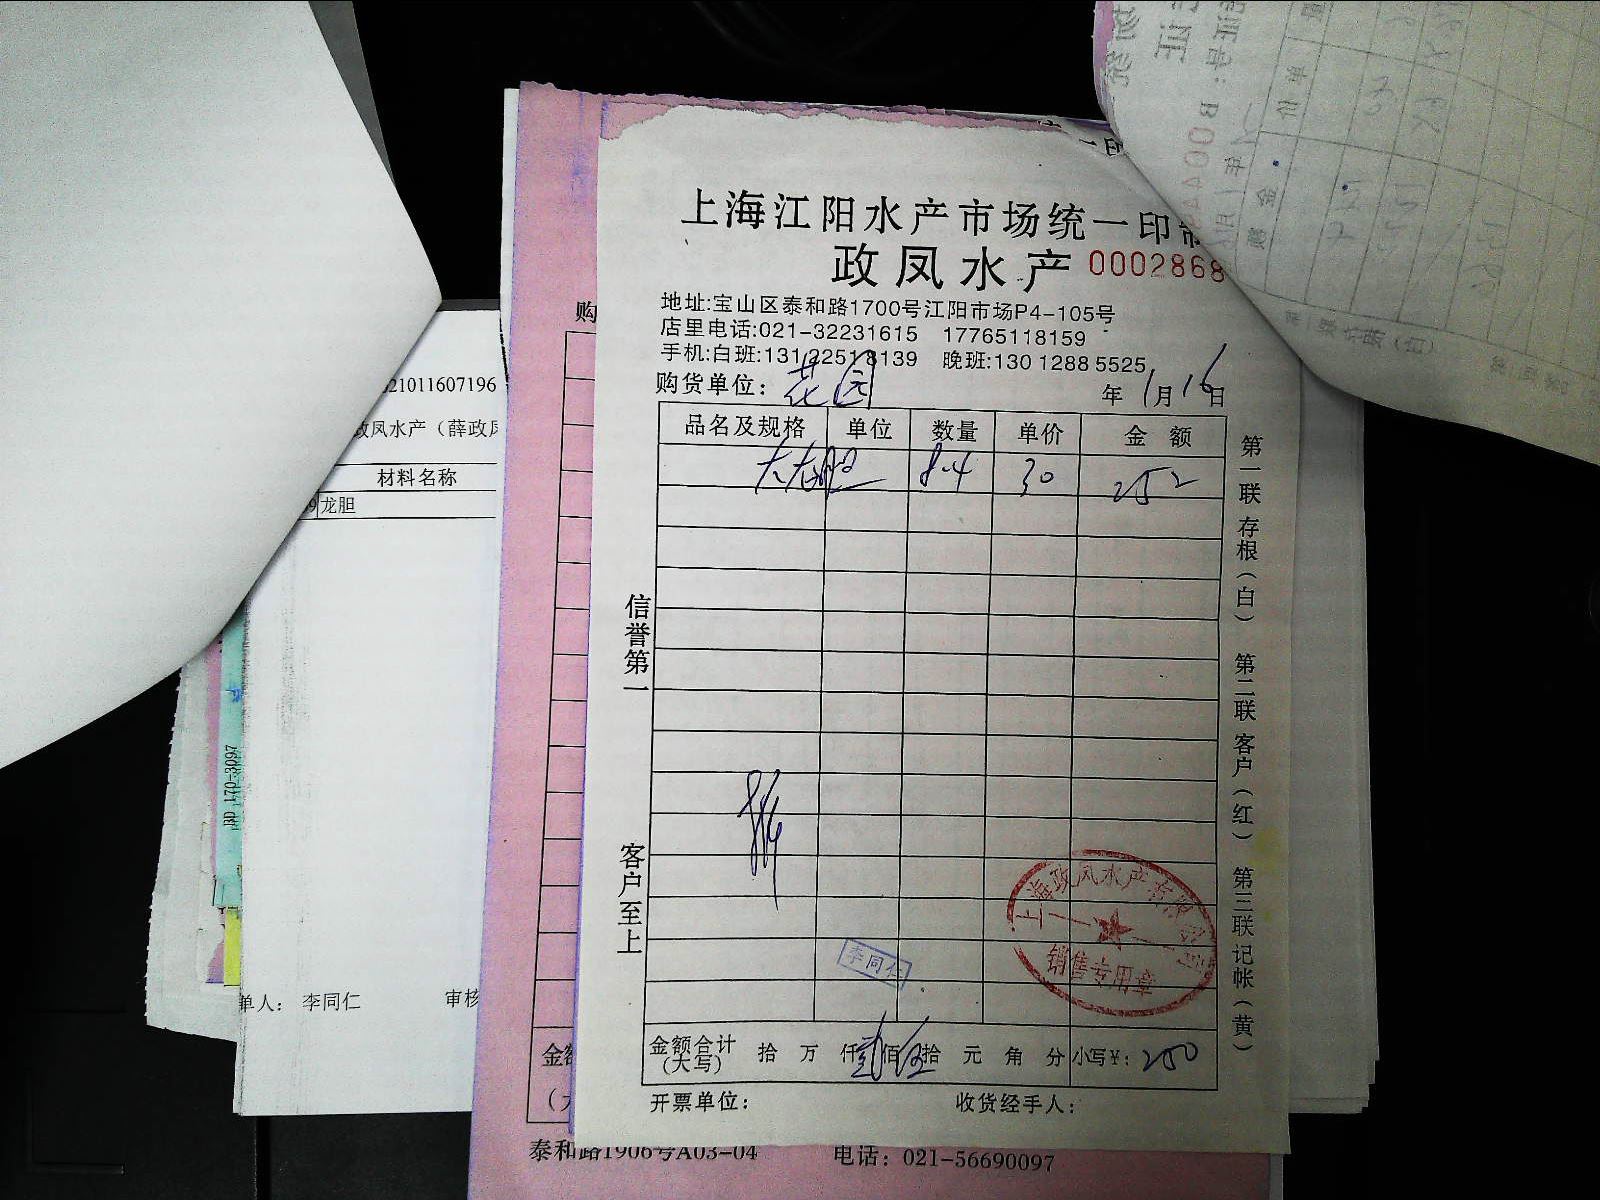 上海江阳水产市场统一印制
政凤水产 0002868
地址:宝山区泰和路1700号江阳市场P4-105号
店里电话:021-32231615 17765118159
手机:白班:13122518139 晚班:13012885525
购货单位: 花园 年 1月 16日
品名及规格 单位 数量 单价 金额
大龙胆 8.4 30 252
信誉第一
客户至上
第一联存根(白) 第二联客户(红) 第三联记帐(黄)
上海政凤水产有限公司
销售专用章
李同仁
金额合计(大写) 拾 万 仟 贰佰 伍拾 元 角 分 小写¥: 250
开票单位: 收货经手人:
21011607196
政凤水产(薛政凤
材料名称
龙胆
单人: 李同仁 审核
BD 170-3097
购
金额
(大
泰和路1906号A03-04 电话: 021-56690097
单价
金额